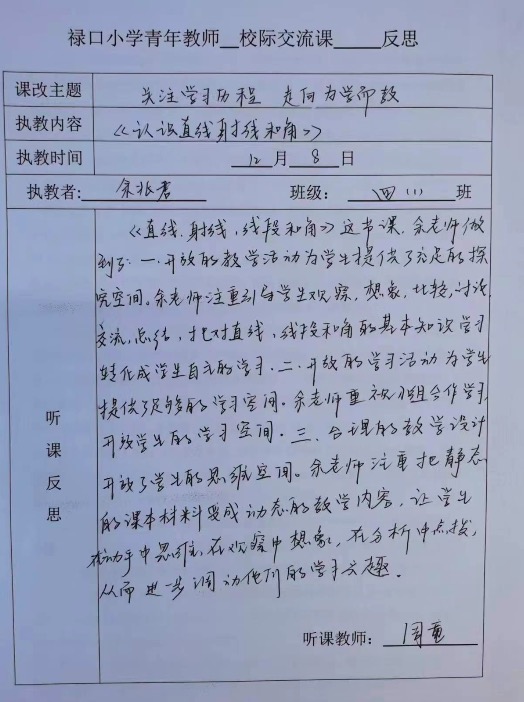 禄口小学青年教师__校际交流课____反思
课改主题 关注学习历程 走向为学而教
执教内容 《认识直线射线和角》
执教时间 12月8日
执教者: 余 君 班级: 四(1)班
听课反思
《直线、射线、线段和角》这节课,余老师做
到了:一.开放的教学活动为学生提供了充足的探
究空间。余老师注重引导学生观察,想象,比较,讨论,
交流,总结,把对直线,线段和角的基本知识学习
转化成学生自主的学习.二.开放的学习活动为学生
提供了足够的学习空间.余老师重视小组合作学习,
开放学生的学习空间.三、合理的教学设计
开放了学生的思维空间。余老师注重把静态
的课本材料变成动态的教学内容,让学生
在动手中思维,在观察中想象,在分析中点拨,
从而进一步调动他们的学习兴趣.
听课教师: 周重